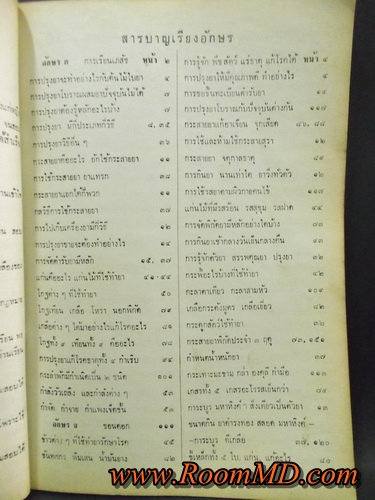 สารบาญเรียงอักษร
อักษร ก การเรียนเภสัช หน้า ๒
การปรุงยาจะทำอย่างไรกับต้นไม้ใบยา ๔
การปรุงยาโบราณผสมยาปัจจุบันไม่ได้ ๗
การปรุงยาต้องรู้หลักอะไรบ้าง ๗
การปรุงยา มีกี่ประเภทกี่วิธี ๘, ๓๕
การปรุงยาวิธีอื่น ๆ ๓๖
กระสายยาคืออะไร ยักใช้กระสายยา ๑๑
การใช้กระสายยา ยาแทรก ๓๘
กระสายยาแยกได้กี่พวก ๑๑
กลวิธีการใช้กระสายยา ๓๗
การไปเก็บเครื่องยามีกี่วิธี ๑๒
การปรุงยาขายจะต้องทำอย่างไร ๑๔
การจัดตำรับยามีหลัก ๑๕, ๓๗
แก่นคืออะไร แก่นไม้ที่ใช้ทำยา ๔๑-๔๔
โกฐต่าง ๆ ที่ใช้ทำยา ๕๐
โกฐเทียน เกลือ โหรา นอกพิกัด ๗๙
เกลือต่าง ๆ ได้มาอย่างไรแก้โรคอะไร ๘๑
โกฐทั้ง ๙ เทียนทั้ง ๙ คืออะไร ๗๘
การปรุงยาแก้โรคธาตุทั้ง ๔ กำเริบ ๙๔
กระลำพักมีกำเนิดเป็น ๒ ชนิด ๑๐๑
กำลังวัวเถลิง และกำลังต่าง ๆ ๕๓
กำพืด กำจาย กำแพงเจ็ดชั้น ๕๓
อักษร ข ขอนดอก ๑๑๑
ข้าวต่าง ๆ ที่ใช้ทำยารักษาโรค ๔๕
ขันทศกร พิมเสน น้ำมันยาง ๘๒
การรู้จัก พืชสัตว์ แร่ธาตุ แก้โรคได้ หน้า ๔
การปรุงยาให้มีคุณภาพดี ทำอย่างไร ๔
การขอขึ้นทะเบียนตำรับยา ๑๔
การปรุงยาโบราณกับปัจจุบันต่างกัน ๑๑๗
กระสายยาแก้ยาเขียว จุกเสียด ๘๖, ๘๘
การใช้และห้ามใช้กระสายสุรา ๑๒
กระสายยา จตุกาลธาตุ ๘๙
การกินยา นานเท่าใด ยาวงหัวตัว ๑๒
การใช้รสยาตามผิวกายคนไข้ ๑๑๗
แก่นไม้ที่มีรสร้อน รสสุขุม รสฝาด ๔๔
การจัดพิกัดยามีหลักอย่างใดบ้าง ๗๓
การกินยาเช้ากลางวันเย็นกลางคืน ๑๓
การรู้จักตัวยา สรรพคุณยา ปรุงยา ๓๒
กระพี้อะไรบ้างที่ใช้ทำยา ๔๒
กะลาตาเดียว กะลาสามหัว ๑๐๔
เกลือกระดังมูตร เกลือเยี่ยว ๔๒
กระดูกสัตว์ใช้ทำยา ๓๖
กระสายยาพิกัดประจำ ๓ ฤดู ๗๓, ๑๕๑
กำหนดน้ำหนักยา ๓๗
เกราะมะขาม กล่ำ องคุลี กำมือ ๑๑๓
เกสรทั้ง ๕ เกสรอะไรรสเย็นกว่า ๗๙
การะบูร มหาหิงค์ุ ๆ สิ่งเดียวเป็นตัวยา ๑๓
ขนาดกิน ยาดำรงทอง สลอด มหาหิงค์
-การะบูร ดีเกลือ ๓๗, ๑๒๐
ขี้เหล็กทั้ง ๕ ใบ, แก่น, แก้อะไร ๘๐
www.RoomMD.com